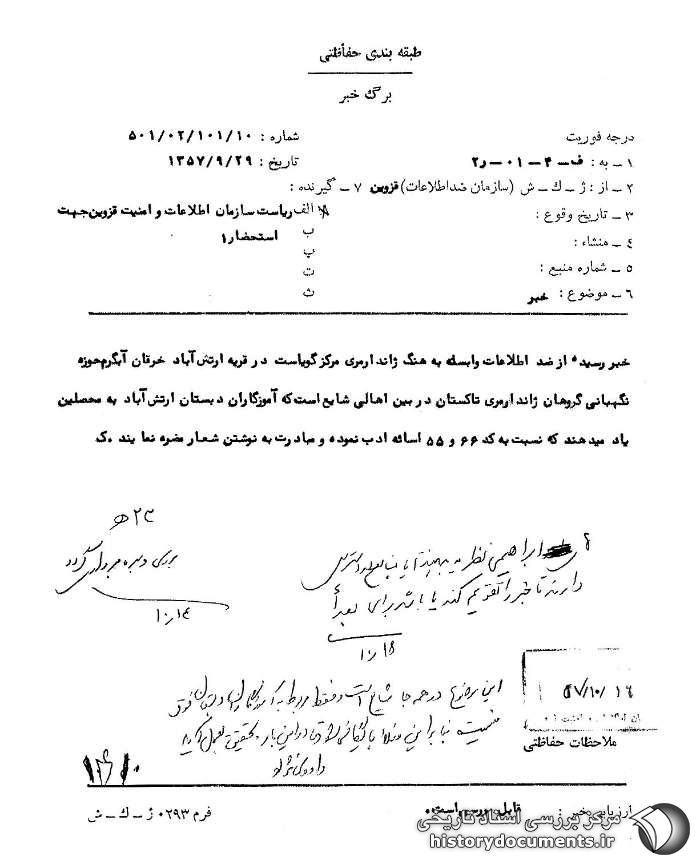 طبقه بندی حفاظتی
برگ خبر
درجه فوریت
شماره : ۵۰۱/۰۲/۱۰۱/۱۰
۱ – به : ف – ۴ – ۰۱ – ر۲
تاریخ : ۱۳۵۷/۹/۲۹
۲ – از : ژ – ك – ش (سازمان ضد اطلاعات) قزوین ۷ – گیرنده :
۳ – تاریخ وقوع :
الف ریاست سازمان اطلاعات و امنیت قزوین جهت
ب
استحضار
۴ – منشاء :
پ
۵ – شماره منبع :
ت
۶ – موضوع : خبر
ث
خبر رسیده از ضد اطلاعات وابسته به هنگ ژاندارمری مرکز گویاست در قریه ارتش آباد خرقان آبگرم حوزه
نگهبانی گروهان ژاندارمری تاکستان در بین اهالی شایع است که آموزگاران دبستان ارتش آباد به محصلین
یاد میدهند که نسبت به کد ۶۶ و ۵۵ اسائه ادب نموده و مبادرت به نوشتن شعار مضره نمایند .ک
۲۳ ه
ابراهیمی نظریه
دارند تا خبر را تقویم کند یا باشد برای بعداً
۱۰/۱۴
۱۰/۱۵
این موضوع در همه جا شایع است و فقط مربوط به آموزگاران دبستان فوق
نیست بنابراین
در این باره تحقیق بعمل آید
۵۷/۱۰/۱۶
ملاحظات حفاظتی
ارزیابی خبر : قابل بررسی است.
فرم ۰۲۹۳ ژ – ك – ش
مرکز بررسی اسناد تاریخی
historydocuments.ir